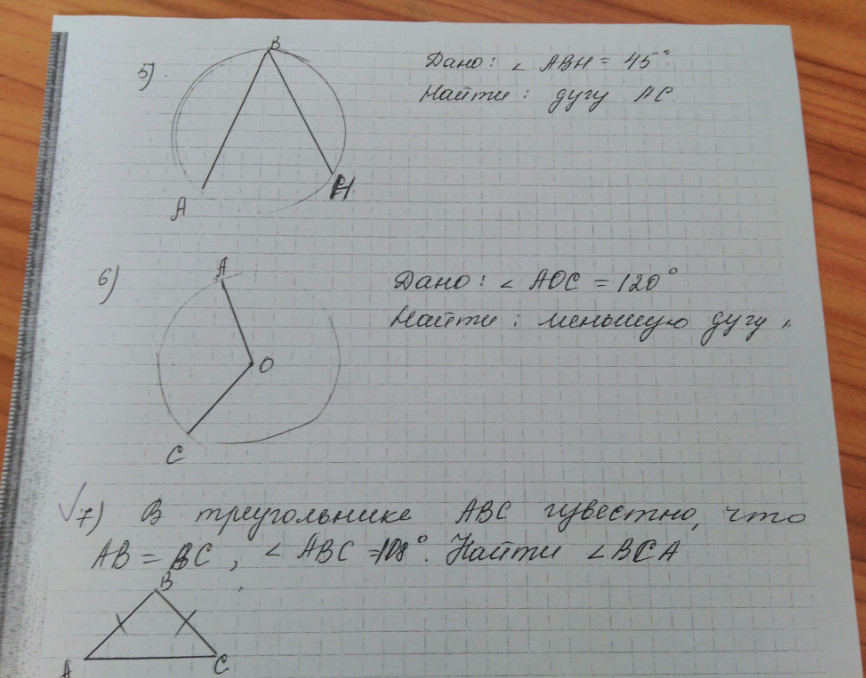 5)
B
A
H
Дано: ∠ ABH = 45°
Найти: дугу AC
6)
A
O
C
Дано: ∠ AOC = 120°
Найти: меньшую дугу
7) В треугольнике ABC известно, что
AB = BC, ∠ ABC = 108°. Найти ∠BCA
B
A
C